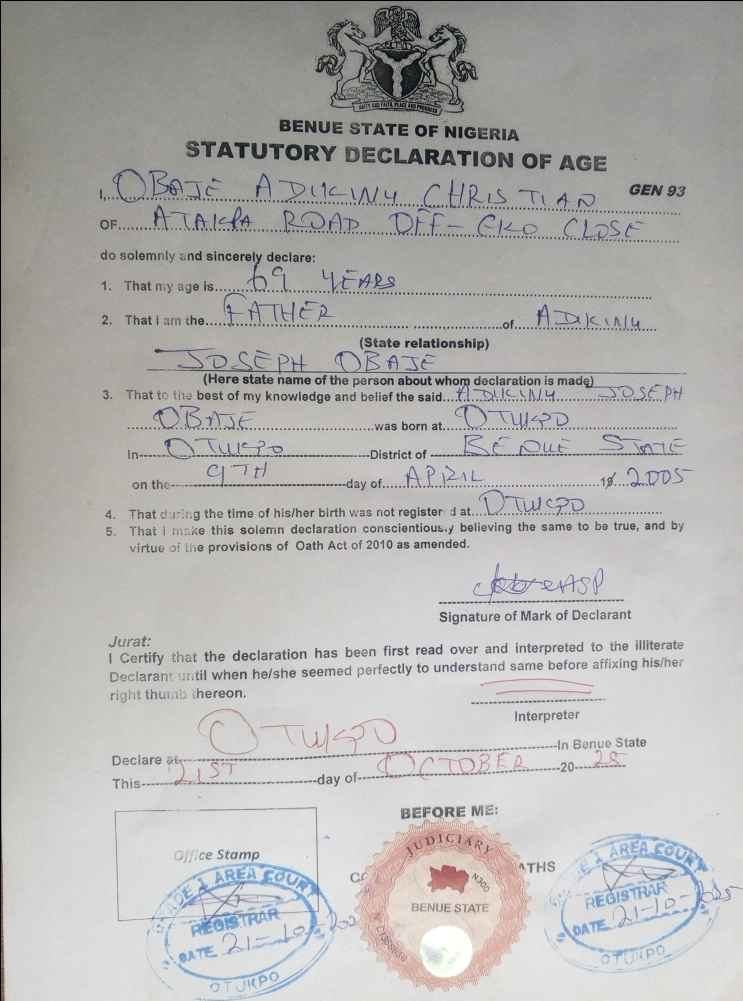 UNITY AND FAITH, PEACE AND PROGRESS
BENUE STATE OF NIGERIA
STATUTORY DECLARATION OF AGE
GEN 93
I, OBAJE ADIKINY CHRISTIAN
OF ATAKPA ROAD OFF-EKO CLOSE
do solemnly and sincerely declare:
1. That my age is 69 YEARS
2. That I am the FATHER of ADIKINY
(State relationship)
JOSEPH OBAJE
(Here state name of the person about whom declaration is made)
3. That to the best of my knowledge and belief the said ADIKINY JOSEPH
OBAJE was born at OTUKPO
In OTUKPO District of BENUE STATE
on the 9TH day of APRIL 19 2005
4. That during the time of his/her birth was not registered at OTUKPO
5. That I make this solemn declaration conscientiously believing the same to be true, and by
virtue of the provisions of Oath Act of 2010 as amended.
Signature of Mark of Declarant
Jurat:
I Certify that the declaration has been first read over and interpreted to the illiterate
Declarant until when he/she seemed perfectly to understand same before affixing his/her
right thumb thereon.
Interpreter
Declare at OTUKPO In Benue State
This 21ST day of OCTOBER 20 25
BEFORE ME:
Office Stamp
GRADE 1 AREA COURT
REGISTRAR
DATE 21-10-202
OTUKPO
JUDICIARY
N300
BENUE STATE
OATHS
GRADE 1 AREA COURT
REGISTRAR
DATE 21-10-2025
OTUKPO